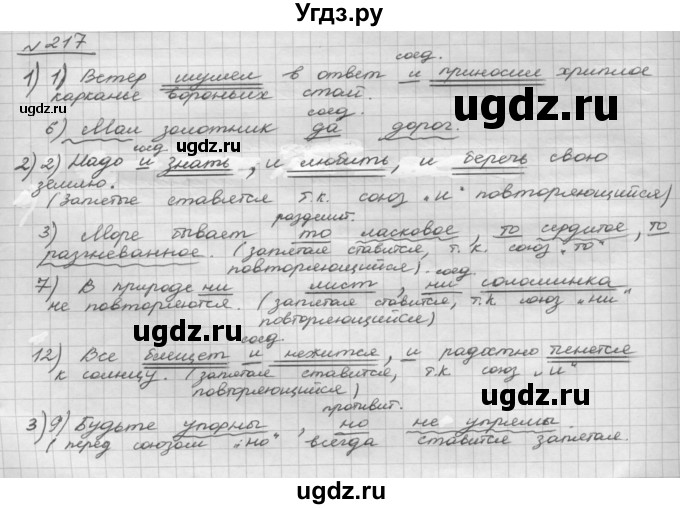 Угдз.ру
№ 217
соед.
1) 1) Ветер шумел в ответ и приносил хриплое
карканье вороньих стай.
соед.
6) Мал золотник да дорог.
соед.
2) 2) Надо и знать, и любить, и беречь свою
землю.
(Запятые ставятся т.к. союз „и" повторяющийся)
разделит.
3) Море бывает то ласковое, то сердитое, то
разгневанное. (запятая ставится, т.к. союз „то"
повторяющийся).
соед.
7) В природе ни лист, ни соломинка
не повторяются. (запятая ставится, т.к союз „ни"
повторяющейся)
соед.
12) Все блещет и нежится, и радостно тянется
к солнцу. (запятая ставится, т.к союз „и"
повторяющийся)
противит.
3) 9) Будьте упорны, но не упрямы.
(перед союзом „но" всегда ставится запятая.
ugdz.ru
ugdz.ru
ugdz.ru
ugdz.ru
ugdz.ru
ugdz.ru
ugdz.ru
ugdz.ru